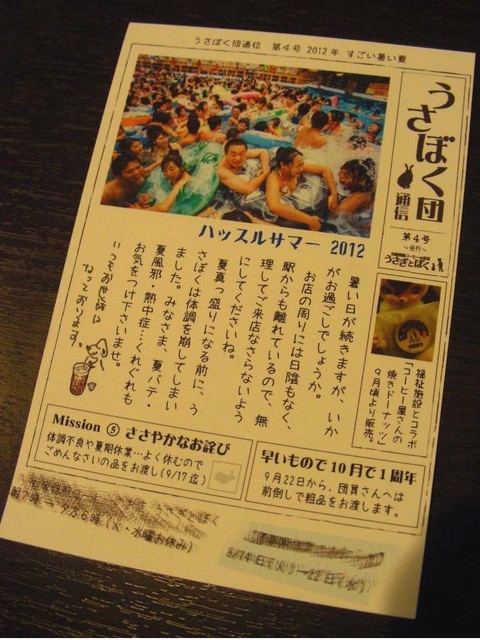 うさぼく団通信 第4号 2012年 すごい暑い夏
うさぼく団
通信
第4号
〜発行〜
うさぎとぼく
ハッスルサマー 2012
暑い日が続きますが、いか
がお過ごしでしょうか。
お店の周りには日陰もなく、
駅からも離れているので、無
理してご来店なさらないよう
にしてくださいね。
夏真っ盛りになる前に、う
さぼくは体調を崩してしまい
ました。みなさま、夏バテ・
夏風邪・熱中症…くれぐれも
お気をつけ下さいませ。
いつもお世話に
なっております!
福祉施設とコラボ
「コーヒー屋さんの
焼きドーナッツ」
9月頃より販売。
Mission ⑤ ささやかなお詫び
体調不良や夏期休業…よく休むので
ごめんなさいの品をお渡し(9/17迄)
早いもので10月で1周年
9月22日から、団員さんへは
前倒しで粗品をお渡します。
水曜お休み)
8/14日(火)→22日(水)